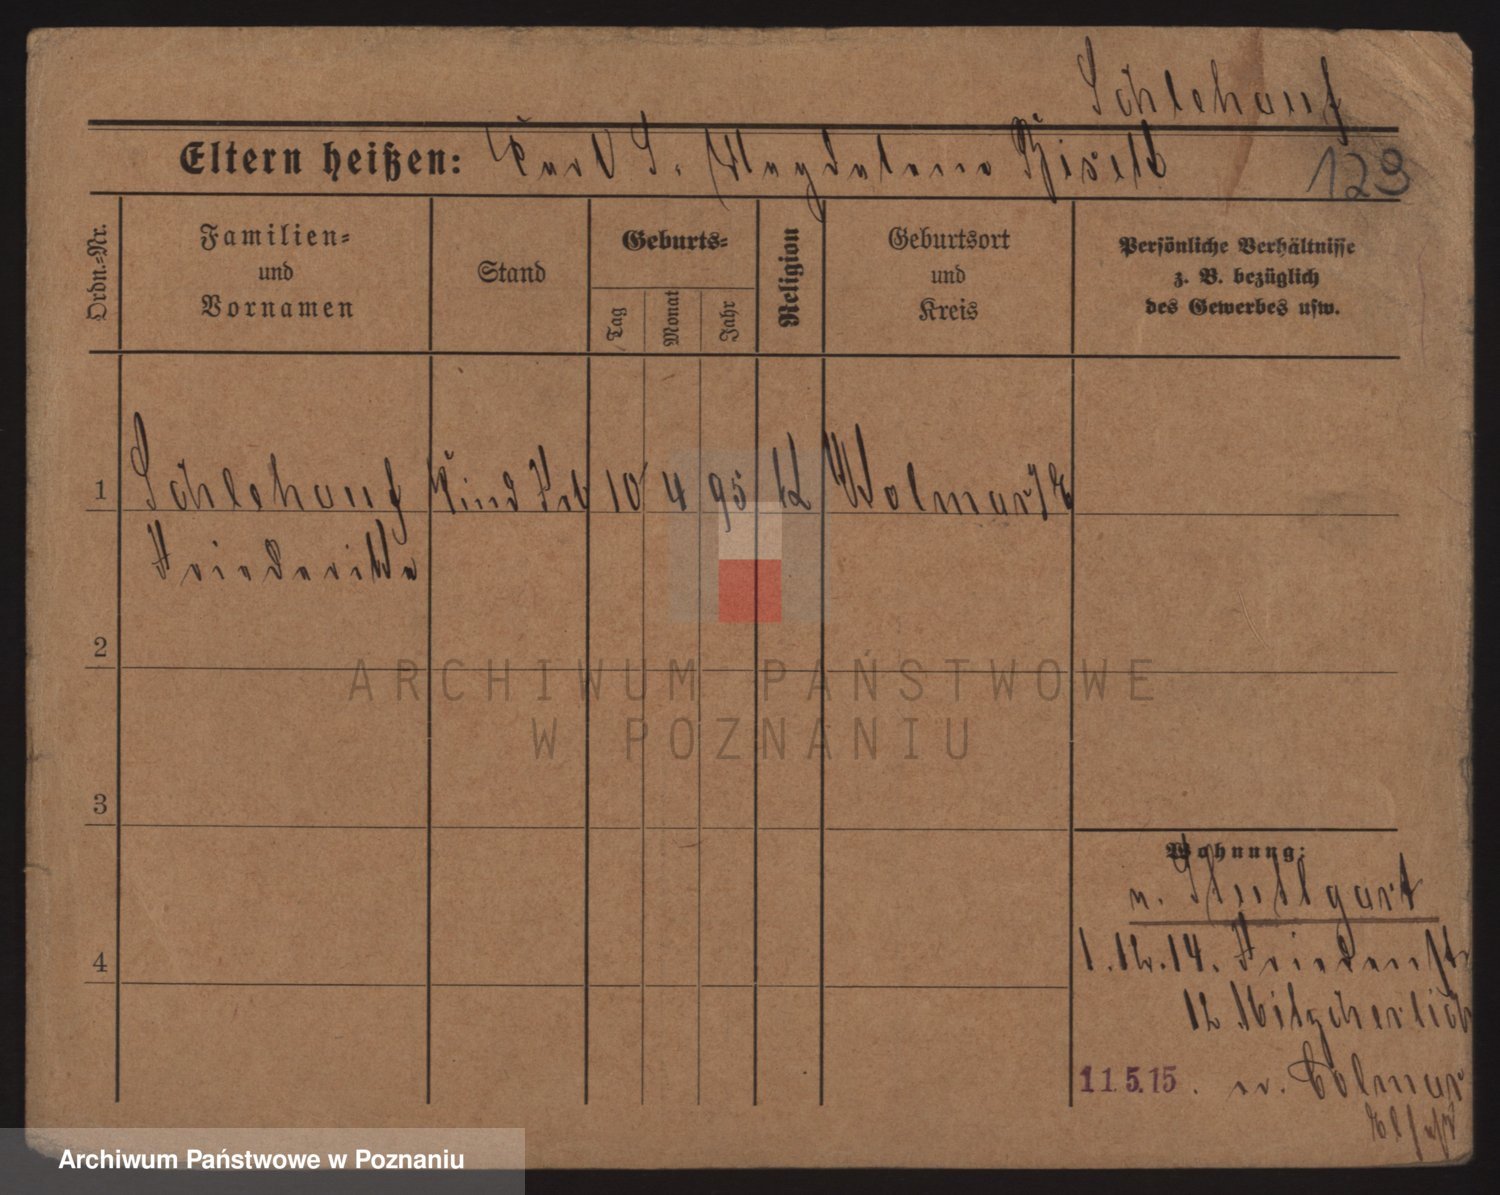 Schlehauf
Eltern heißen: Karl S. Magdalena
123
Ordn.=Nr.
Familien=
und
Vornamen
Stand
Geburts=
Tag
Monat
Jahr
Religion
Geburtsort
und
Kreis
Persönliche Verhältnisse
z. B. bezüglich
des Gewerbes usw.
1
Schlehauf 10 4 95 Kolmar i/E
Friederike
2
3
4
Wohnung:
v. Stuttgart
1.12.14. Friedenstr
12 Mitzcherlich
11.5.15. n. Colmar
Elsaß
ARCHIWUM PAŃSTWOWE
W POZNANIU
Archiwum Państwowe w Poznaniu